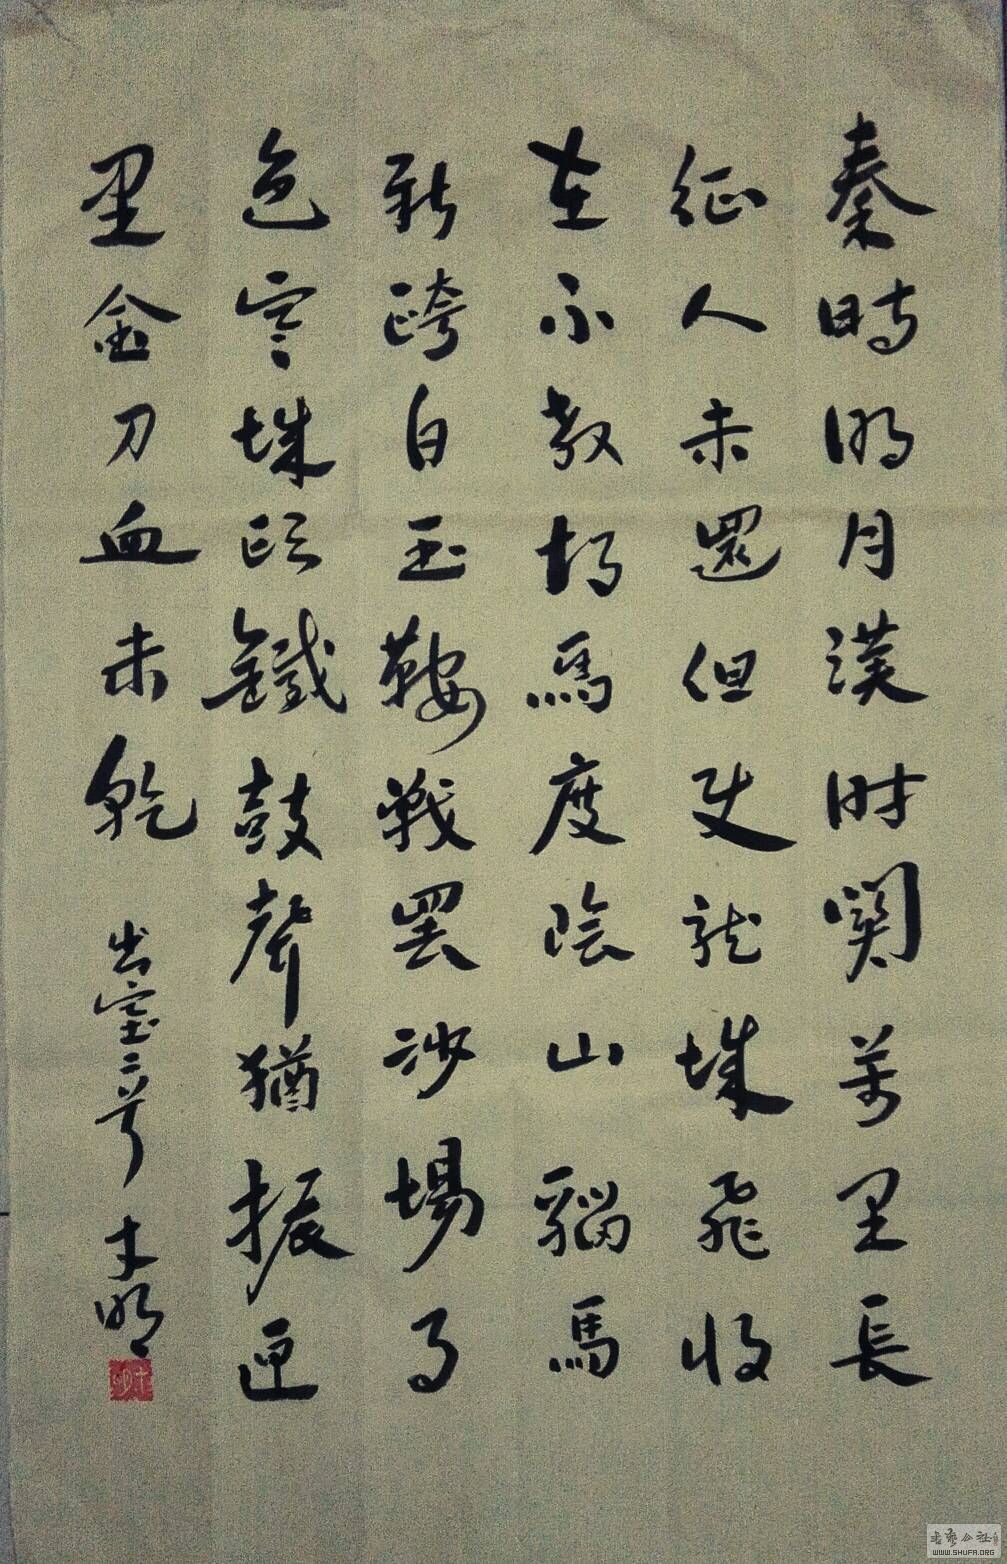 秦時明月漢时關萬里長
征人未還但使龍城飛將
在不教胡馬度陰山騮馬
新跨白玉鞍戰罷沙場月
色寒城頭鐵鼓聲猶振匣
里金刀血未乾 出塞二首 明
书艺公社
WWW.SHUFA.ORG